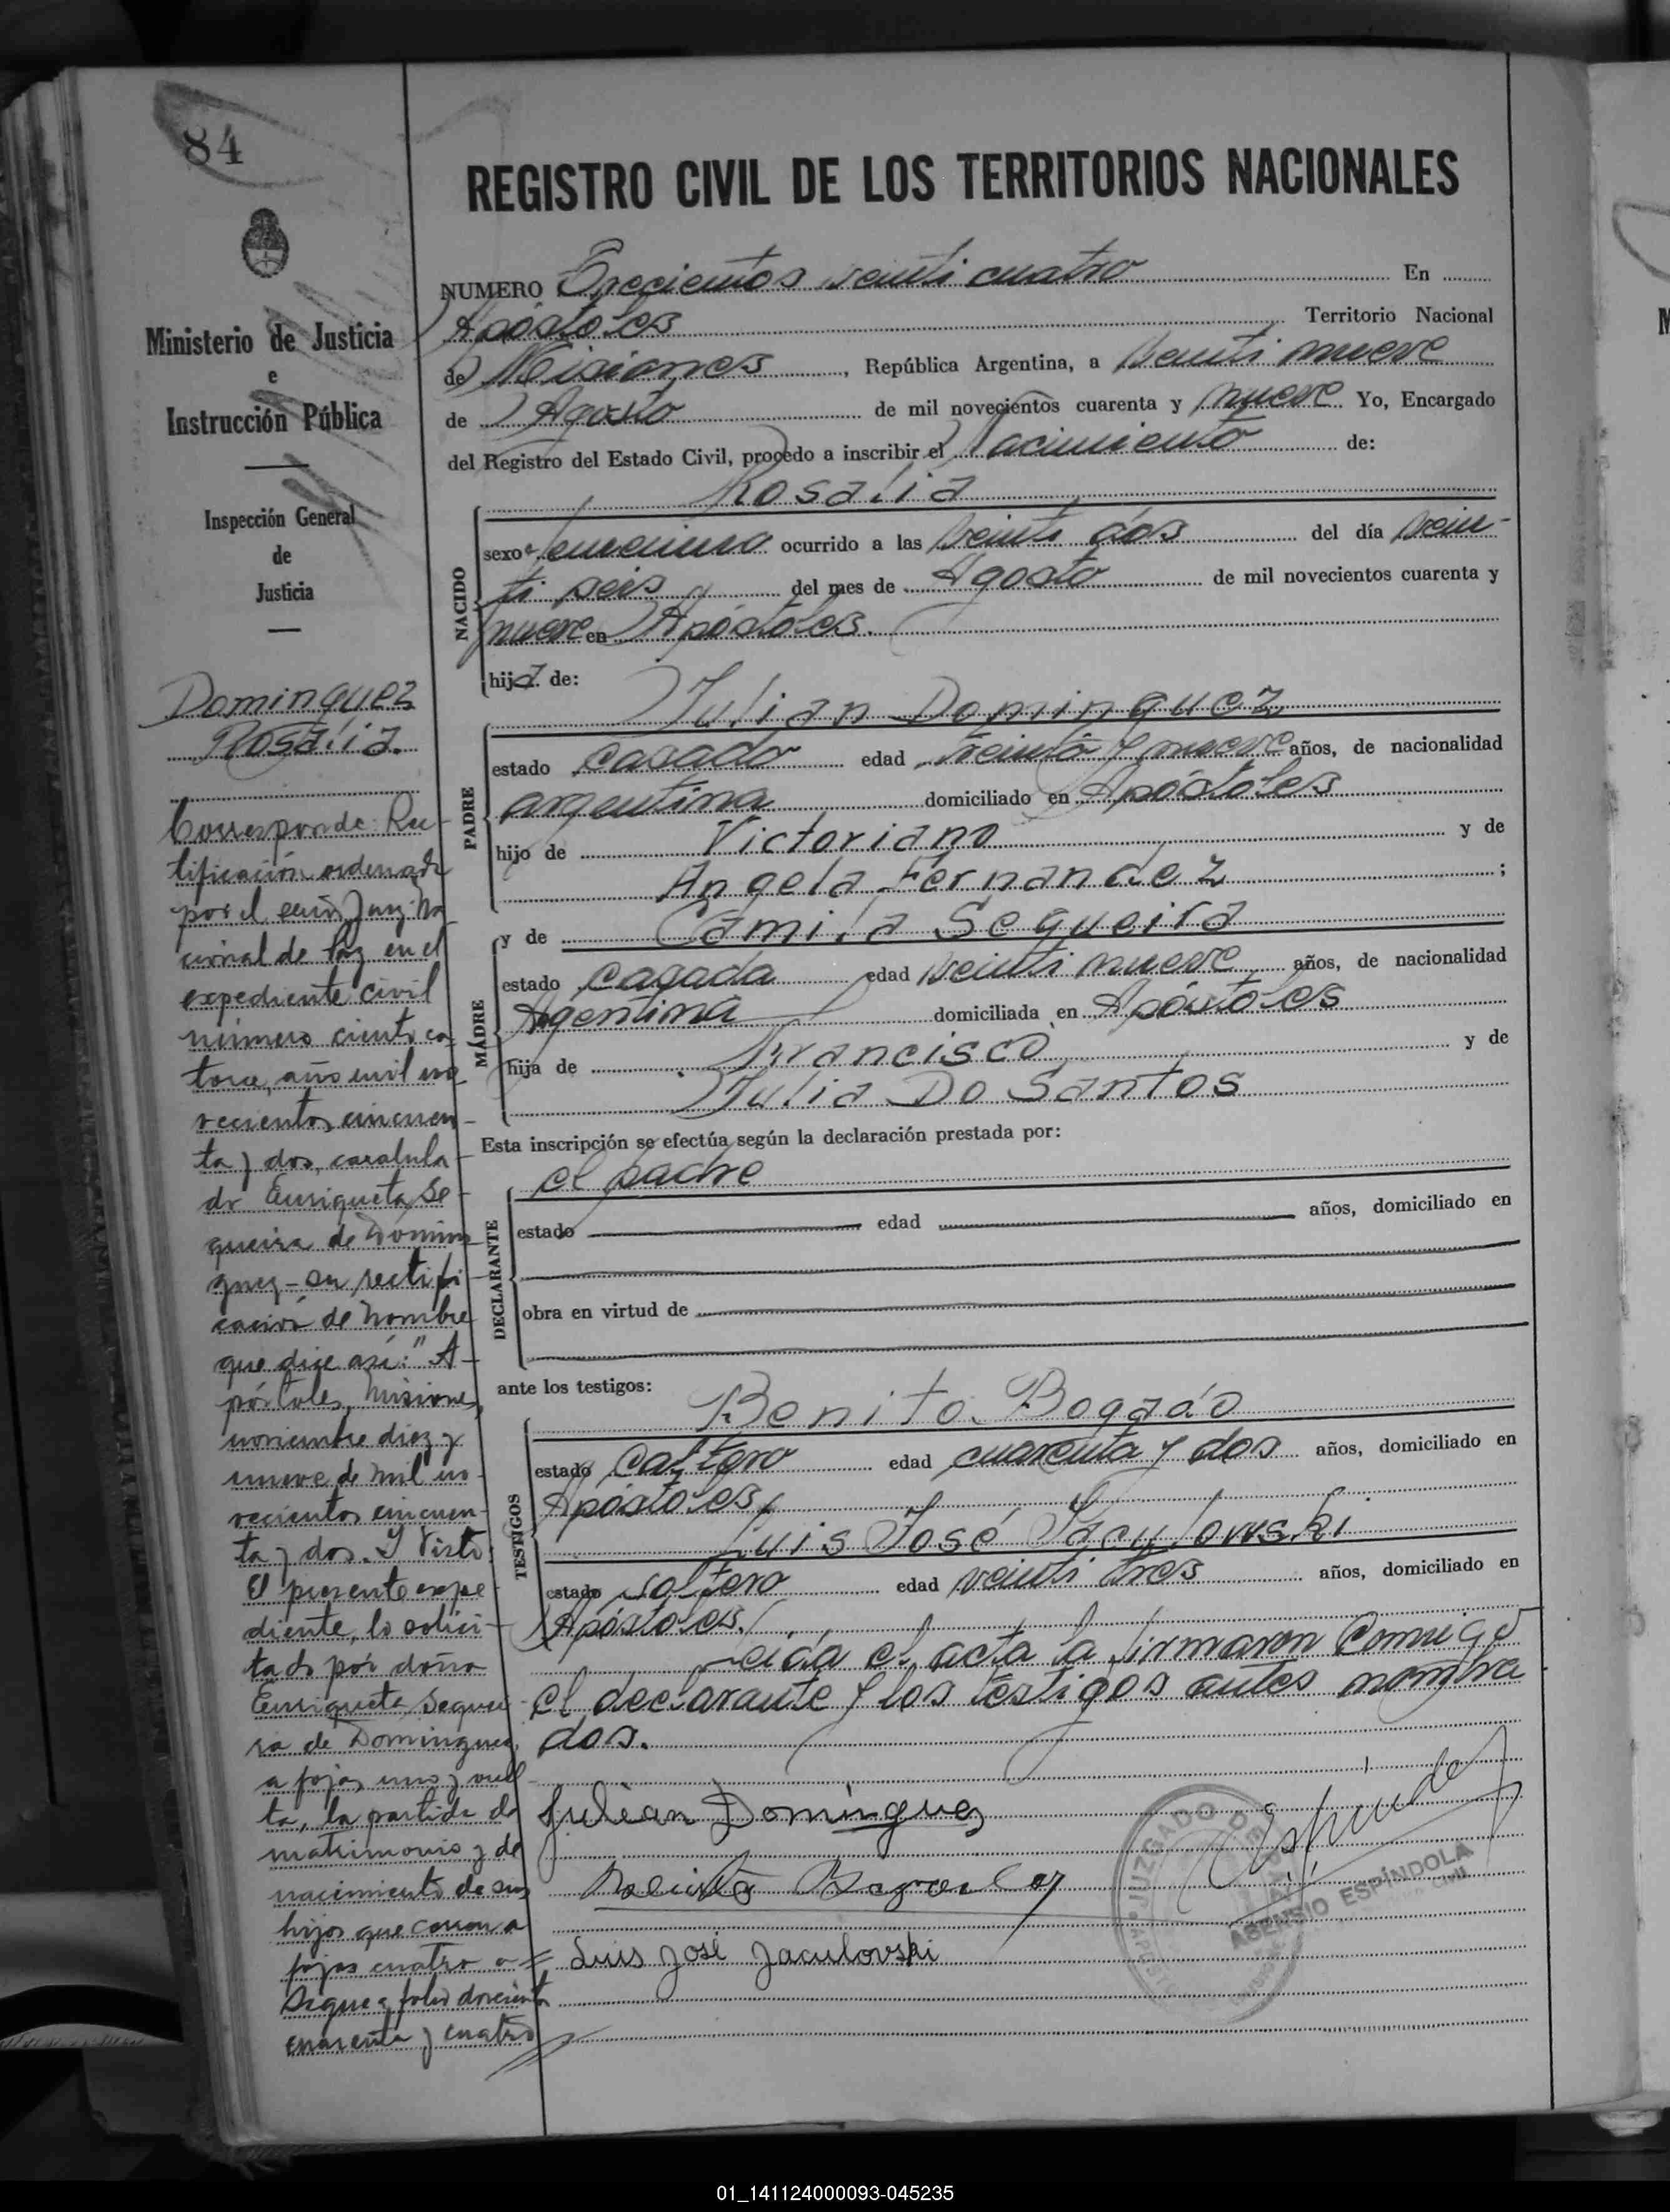 84
Ministerio de Justicia
e
Instrucción Pública
Inspección General
de
Justicia
Dominguez
Rosalia.
Corresponde: Rec-
tificación ordenada
por el señor Juez Na
cional de Paz en el
expediente civil
número ciento ca
torce, año mil no
vecientos cincuen-
ta y dos, caratula-
do Enriqueta Se-
queira de Domin
guez - su rectifi-
cación de nombre
que dice así: "A-
póstoles, Misiones,
noviembre diez y
nueve de mil no-
vecientos cincuen-
ta y dos. Y Visto:
El presente expe-
diente, lo solici-
tado por doña
Enriqueta Sequei-
ra de Dominguez,
a fojas uno y vuel
ta, la partida de
matrimonio y de
nacimiento de sus
hijos que corren a
fojas cuatro a =
Sigue a folio doscientos
cuarenta y cuatro
REGISTRO CIVIL DE LOS TERRITORIOS NACIONALES
NUMERO Trecientos veinti cuatro En
Apóstoles Territorio Nacional
de Misiones, República Argentina, a Veinti nueve
de Agosto de mil novecientos cuarenta y nueve Yo, Encargado
del Registro del Estado Civil, procedo a inscribir el Nacimiento de:
Rosalia
NACIDO
sexo femenino ocurrido a las veinti dos del día vein-
ti seis del mes de Agosto de mil novecientos cuarenta y
nueve en Apóstoles.
hija de:
Julian Dominguez
PADRE
estado casado edad treinta y nueve años, de nacionalidad
argentina domiciliado en Apóstoles
hijo de Victoriano y de
Angela Fernandez ;
y de Camila Sequeira
MADRE
estado casada edad veinti nueve años, de nacionalidad
Argentina domiciliada en Apóstoles
hija de Francisco y de
Julia Do Santos
Esta inscripción se efectúa según la declaración prestada por:
el padre
DECLARANTE
estado edad años, domiciliado en
obra en virtud de
ante los testigos:
Benito Bogado
TESTIGOS
estado edad cuarenta y dos años, domiciliado en
Apóstoles y
Luis José Jaculowski
estado soltero edad veinti tres años, domiciliado en
Apóstoles.
Leida el acta la firmaron Comigo
el declarante y los testigos antes nombra
dos.
Julian Dominguez
Luis José Jaculovski
JUZGADO DE
ASENSIO ESPÍNDOLA
01_141124000093-045235